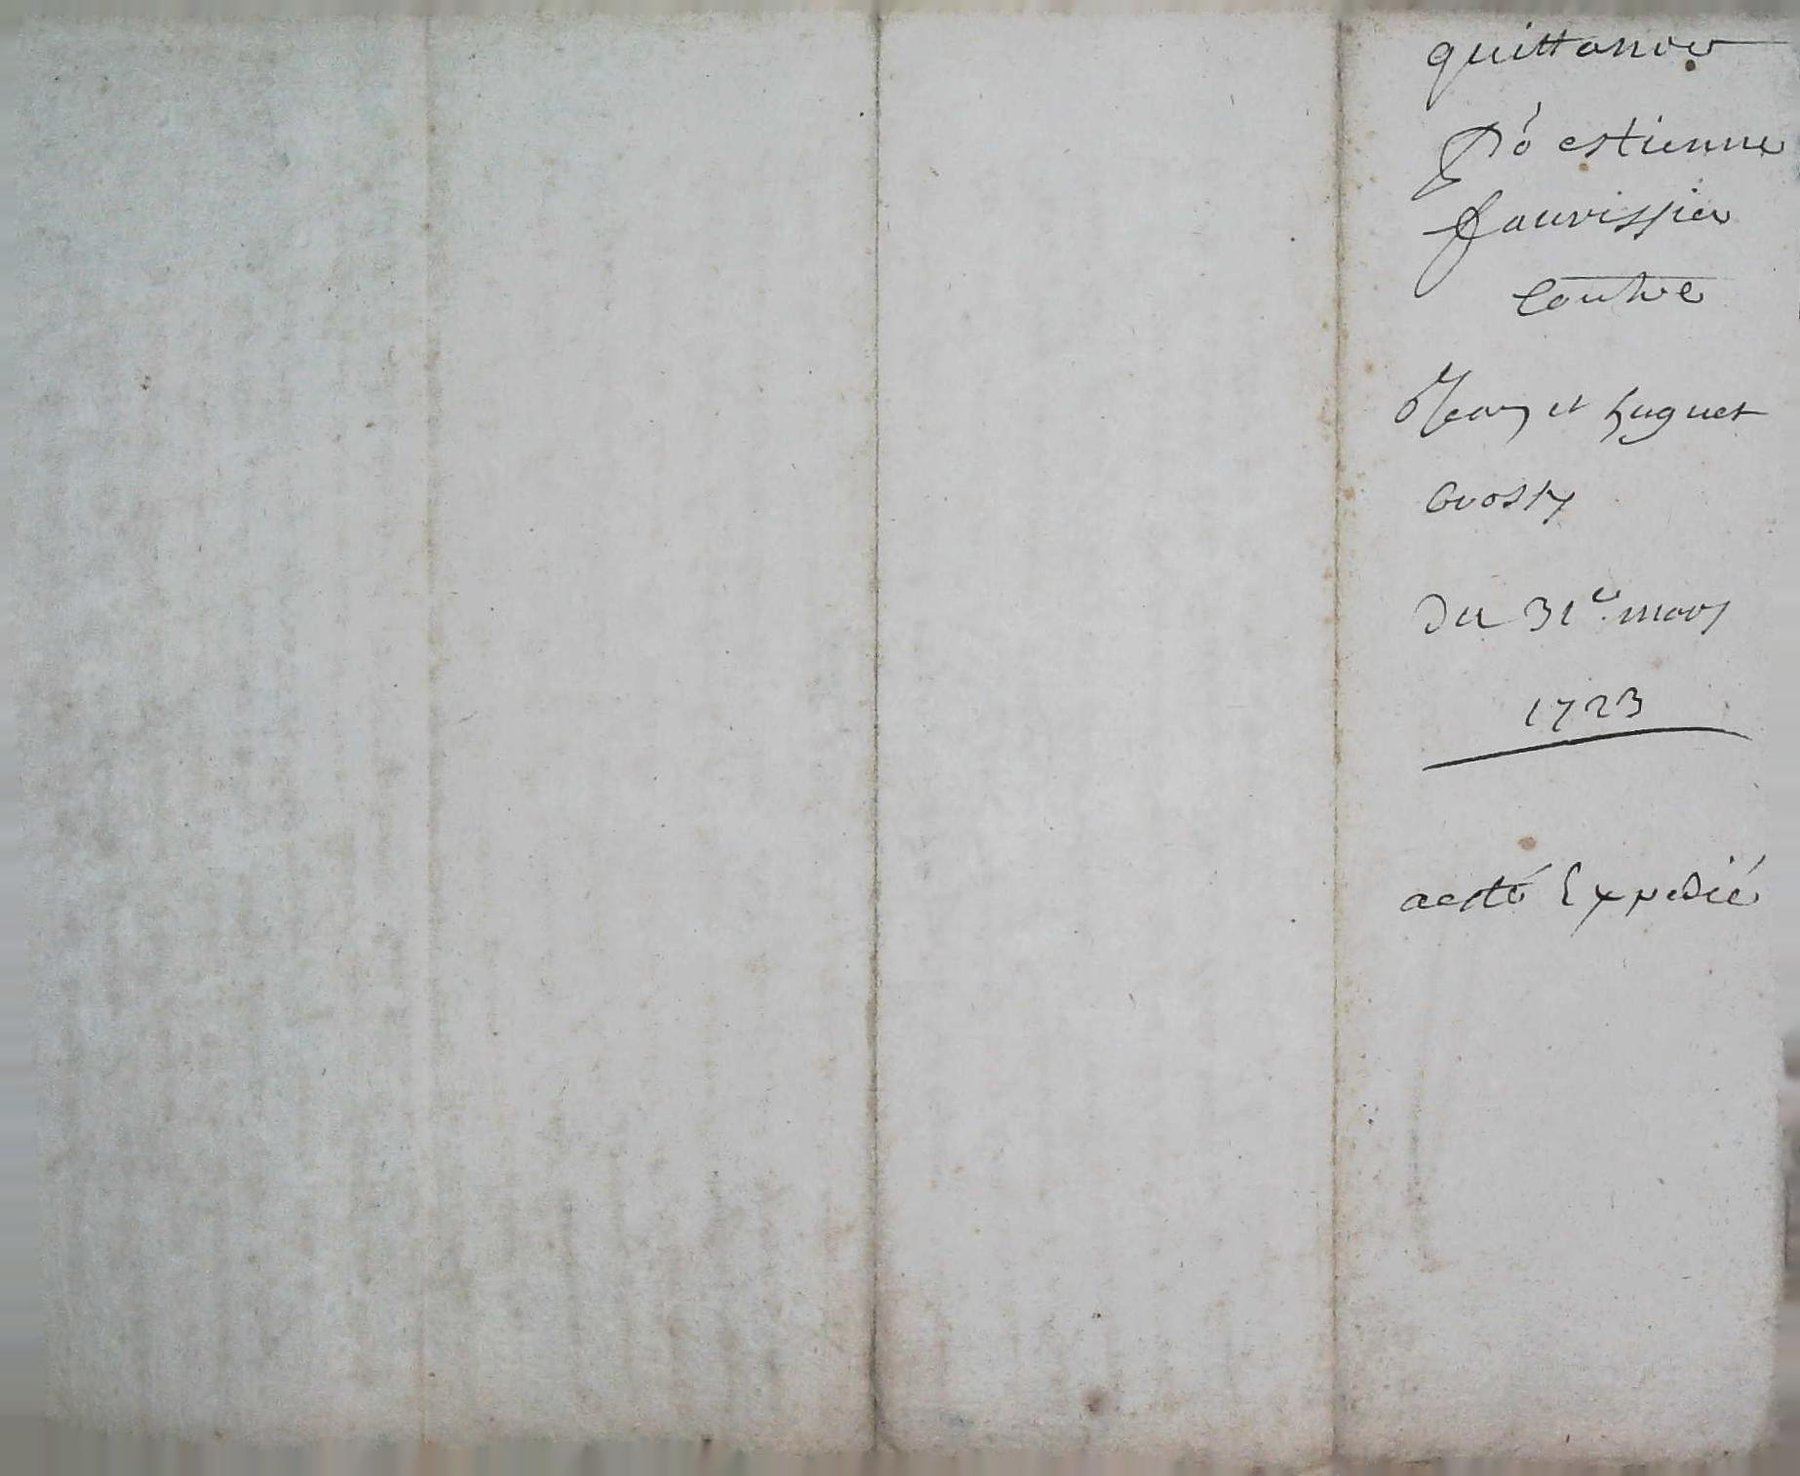 quittance
Po estienne
fauvissier
Contre
Jean et huguet
Crosty
du 31e mars
1723
a esté Expedié